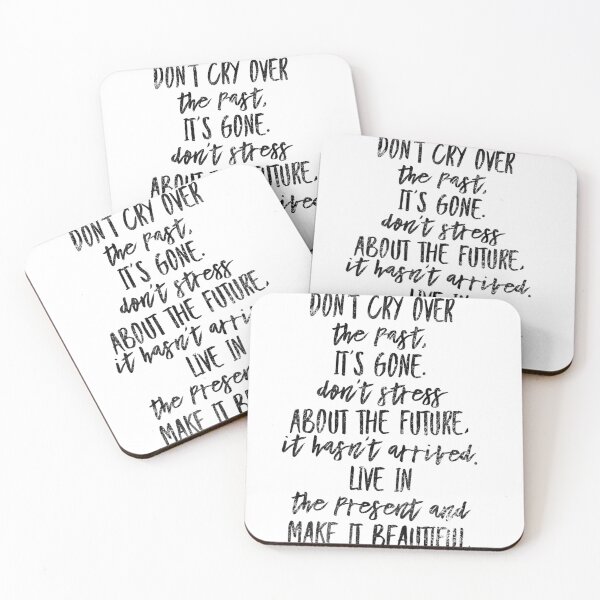 DON'T CRY OVER
the past,
IT'S GONE.
don't stress
FUTURE,
DON'T CRY OVER
the past,
IT'S GONE.
don't stress
ABOUT THE FUTURE,
it hasn't arrived.
LIVE IN
DON'T CRY OVER
the past,
IT'S GONE.
don't stress
ABOUT THE FUTURE,
it hasn't arri
LIVE IN
the present
MAKE IT BE
DON'T CRY OVER
the past,
IT'S GONE.
don't stress
ABOUT THE FUTURE,
it hasn't arrived.
LIVE IN
the present and
MAKE IT BEAUTIFUL.